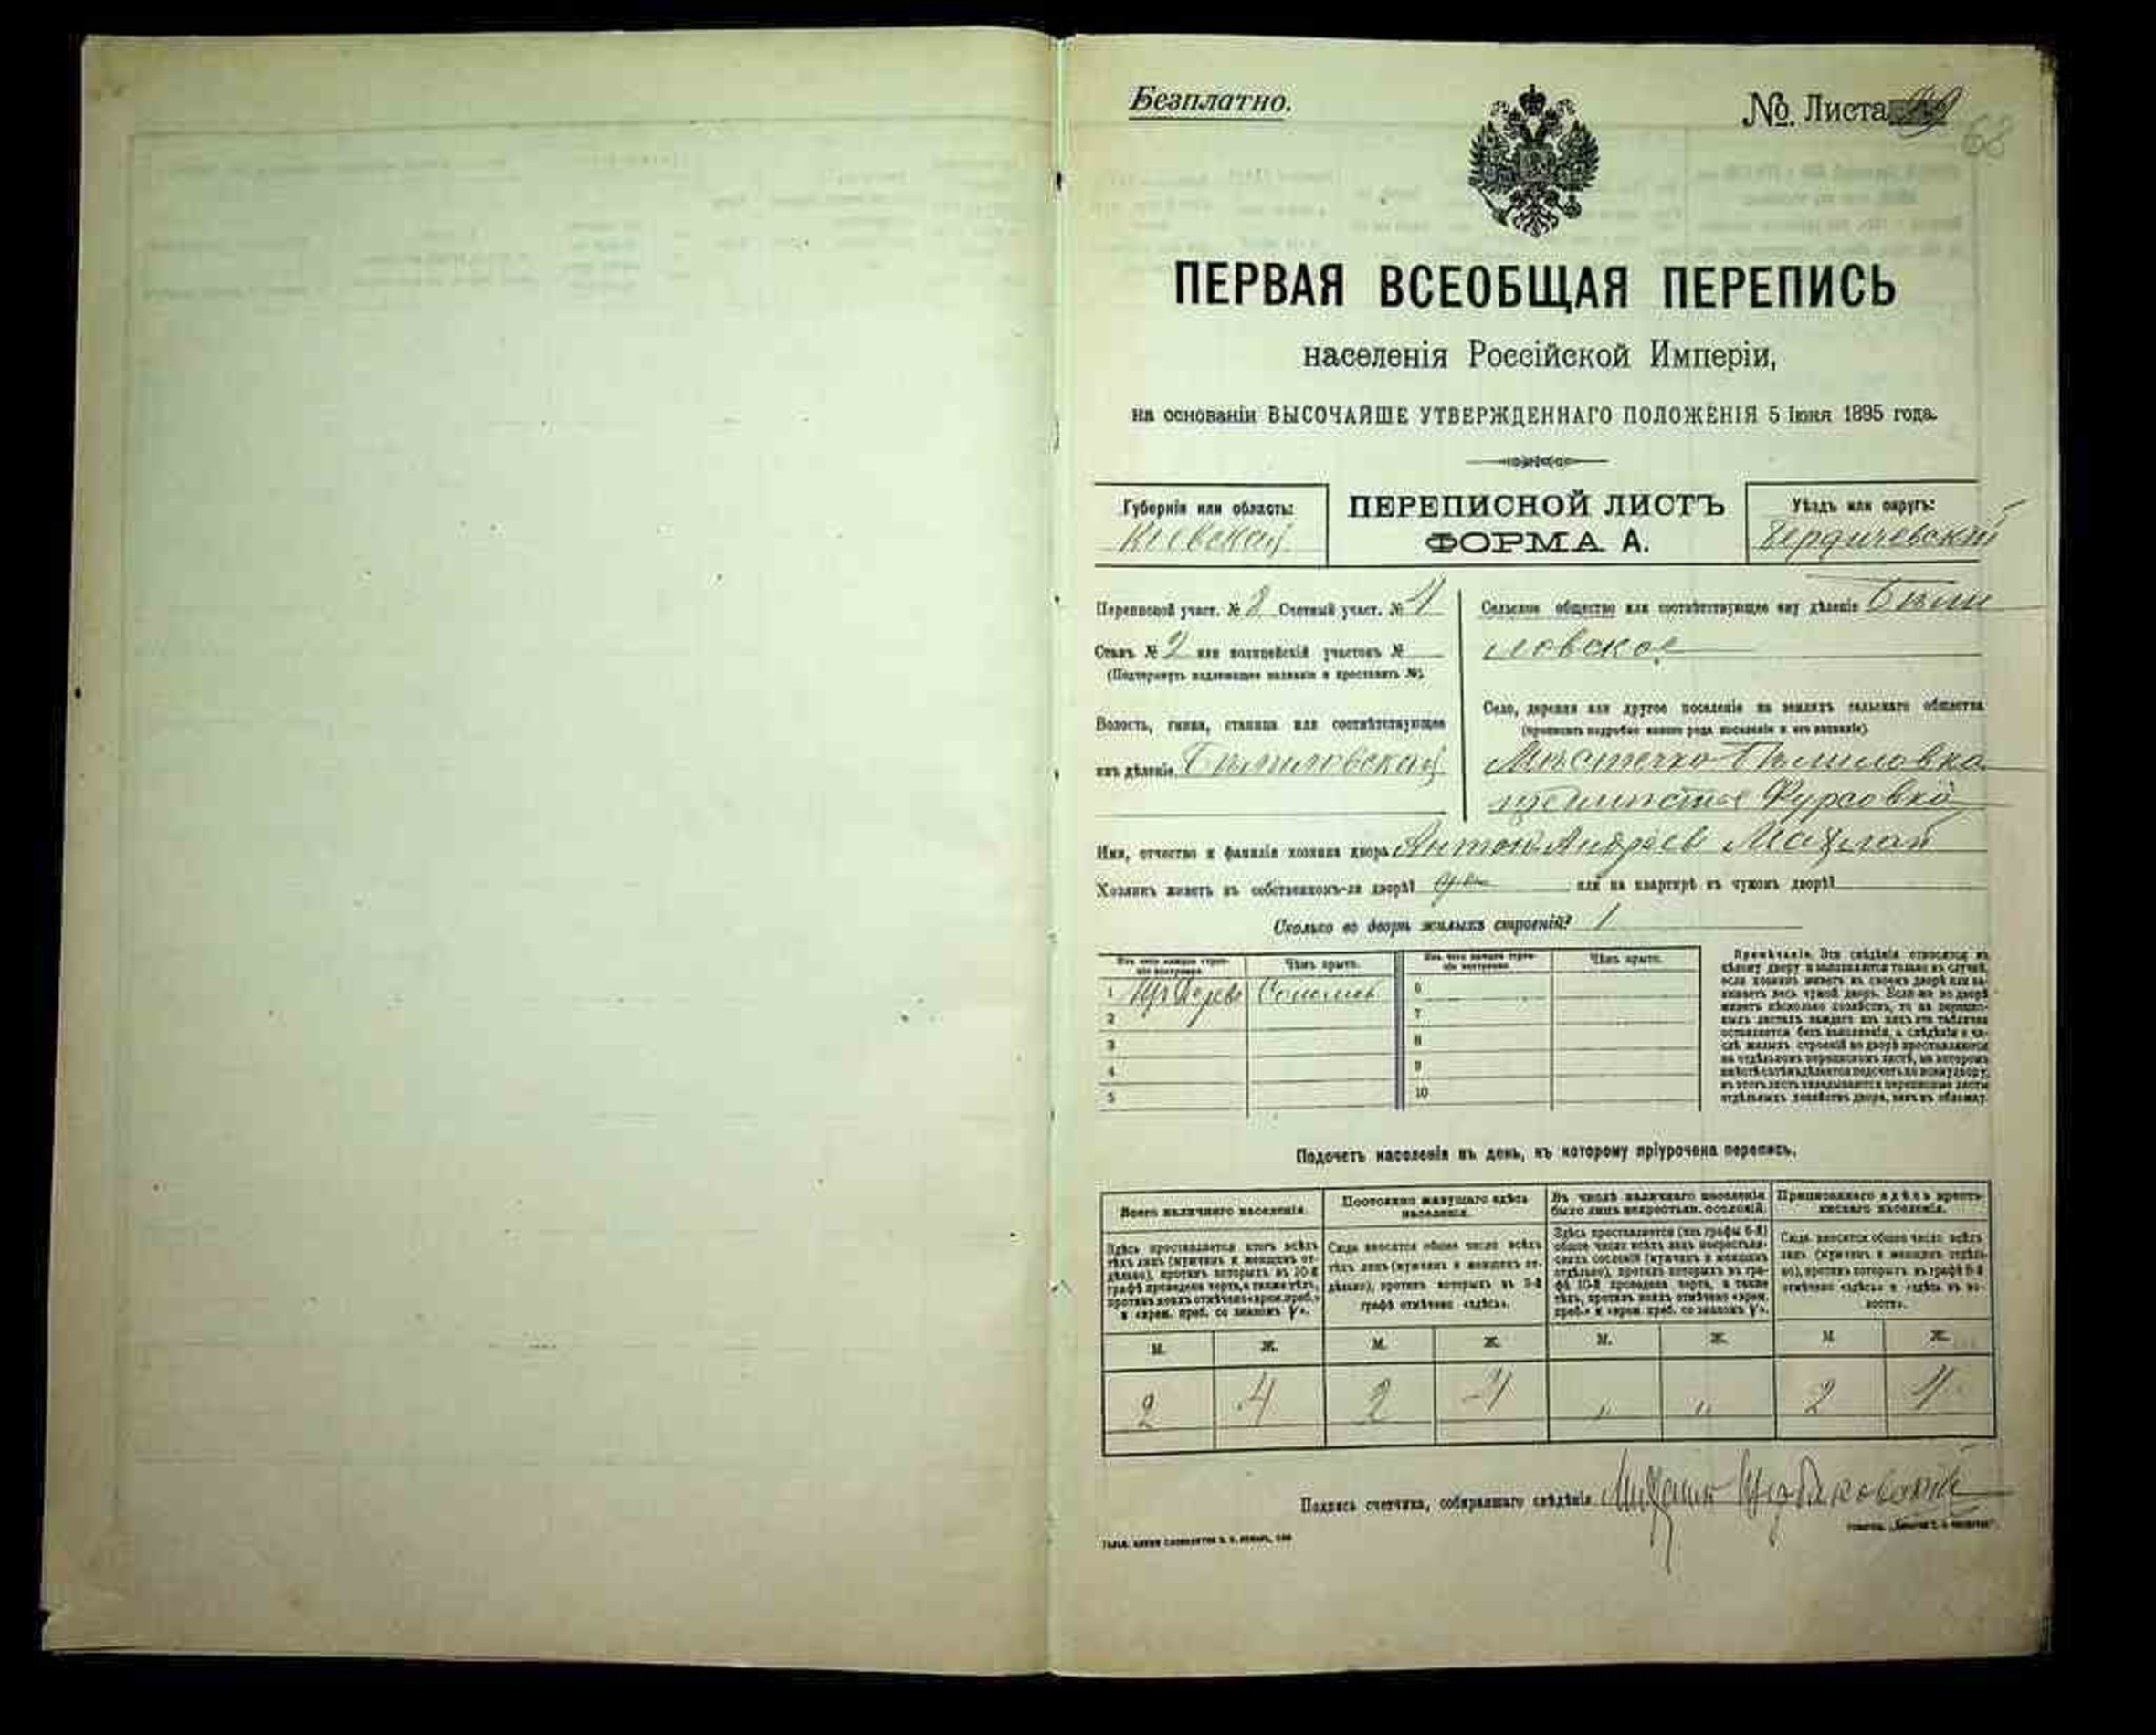 Безплатно.
№ Листа 49
68
ПЕРВАЯ ВСЕОБЩАЯ ПЕРЕПИСЬ
населенія Россійской Имперіи,
на основаніи ВЫСОЧАЙШЕ УТВЕРЖДЕННАГО ПОЛОЖЕНІЯ 5 Іюня 1895 года.
Губернія или область:
Кіевская
ПЕРЕПИСНОЙ ЛИСТЪ
ФОРМА А.
Уѣздъ или округъ:
Бердичевскій
Переписной участ. № 2 Счетный участ. № 4
Станъ № 2 или полицейскій участокъ №
(Подчеркнуть надлежащее названіе и проставить №).
Волость, гмина, станица или соотвѣтствующее
имъ дѣленіе Бѣлиловская
Сельское общество или соотвѣтствующее ему дѣленіе Бѣли
ловское
Село, деревня или другое поселеніе на земляхъ сельскаго общества
(прописать подробно какого рода поселеніе и его названіе).
Мѣстечко Бѣлиловка
предмѣстье Фурсовка
Имя, отчество и фамилія хозяина двора Антонъ Андреевъ
Хозяинъ живетъ въ собственномъ-ли дворѣ? да или на квартирѣ въ чужомъ дворѣ?
Сколько во дворѣ жилыхъ строеній? 1
Изъ чего каждое строеніе построено.
Чѣмъ крыто.
Изъ чего каждое строеніе построено.
Чѣмъ крыто.
1 Изъ дерева Соломой 6
2 7
3 8
4 9
5 10
Примѣчаніе. Эти свѣдѣнія относятся къ
цѣлому двору и заполняются только въ случаѣ,
если хозяинъ живетъ въ своемъ дворѣ или за-
нимаетъ весь чужой дворъ. Если же во дворѣ
живетъ нѣсколько хозяйствъ, то на перепис-
ныхъ листахъ каждаго изъ нихъ эта табличка
оставляется безъ заполненія, а свѣдѣнія о чи-
слѣ жилыхъ строеній во дворѣ проставляются
на отдѣльномъ переписномъ листѣ, на которомъ
вмѣстѣ съ тѣмъ дѣлается подсчетъ по всему двору;
въ этотъ листъ вкладываются переписные листы
отдѣльныхъ хозяйствъ двора, какъ въ обложку.
Подсчетъ населенія въ день, къ которому пріурочена перепись.
Всего наличнаго населенія.
Здѣсь проставляется итогъ всѣхъ
тѣхъ лицъ (мужчинъ и женщинъ от-
дѣльно), противъ которыхъ въ 10-й
графѣ проведена черта, а также тѣхъ,
противъ коихъ отмѣчено «врем. преб.»
и «врем. преб. со знакомъ V».
Постоянно живущаго здѣсь
населенія.
Сюда вносится общее число всѣхъ
тѣхъ лицъ (мужчинъ и женщинъ от-
дѣльно), противъ которыхъ въ 9-й
графѣ отмѣчено «здѣсь».
Въ числѣ наличнаго населенія
было лицъ некрестьян. сословій.
Здѣсь проставляется (изъ графы 6-й)
общее число всѣхъ лицъ некрестьян-
скихъ сословій (мужчинъ и женщинъ
отдѣльно), противъ которыхъ въ гра-
фѣ 10-й проведена черта, а также
тѣхъ, противъ коихъ отмѣчено «врем.
преб.» и «врем. преб. со знакомъ V».
Приписаннаго здѣсь кресть-
янскаго населенія.
Сюда вносится общее число всѣхъ
лицъ (мужчинъ и женщинъ отдѣль-
но), противъ которыхъ въ графѣ 8-й
отмѣчено «здѣсь» и «здѣсь въ во-
лости».
М. Ж. М. Ж. М. Ж. М. Ж.
2 4 2 4 " " 2 4
Подпись счетчика, собиравшаго свѣдѣнія Михаилъ